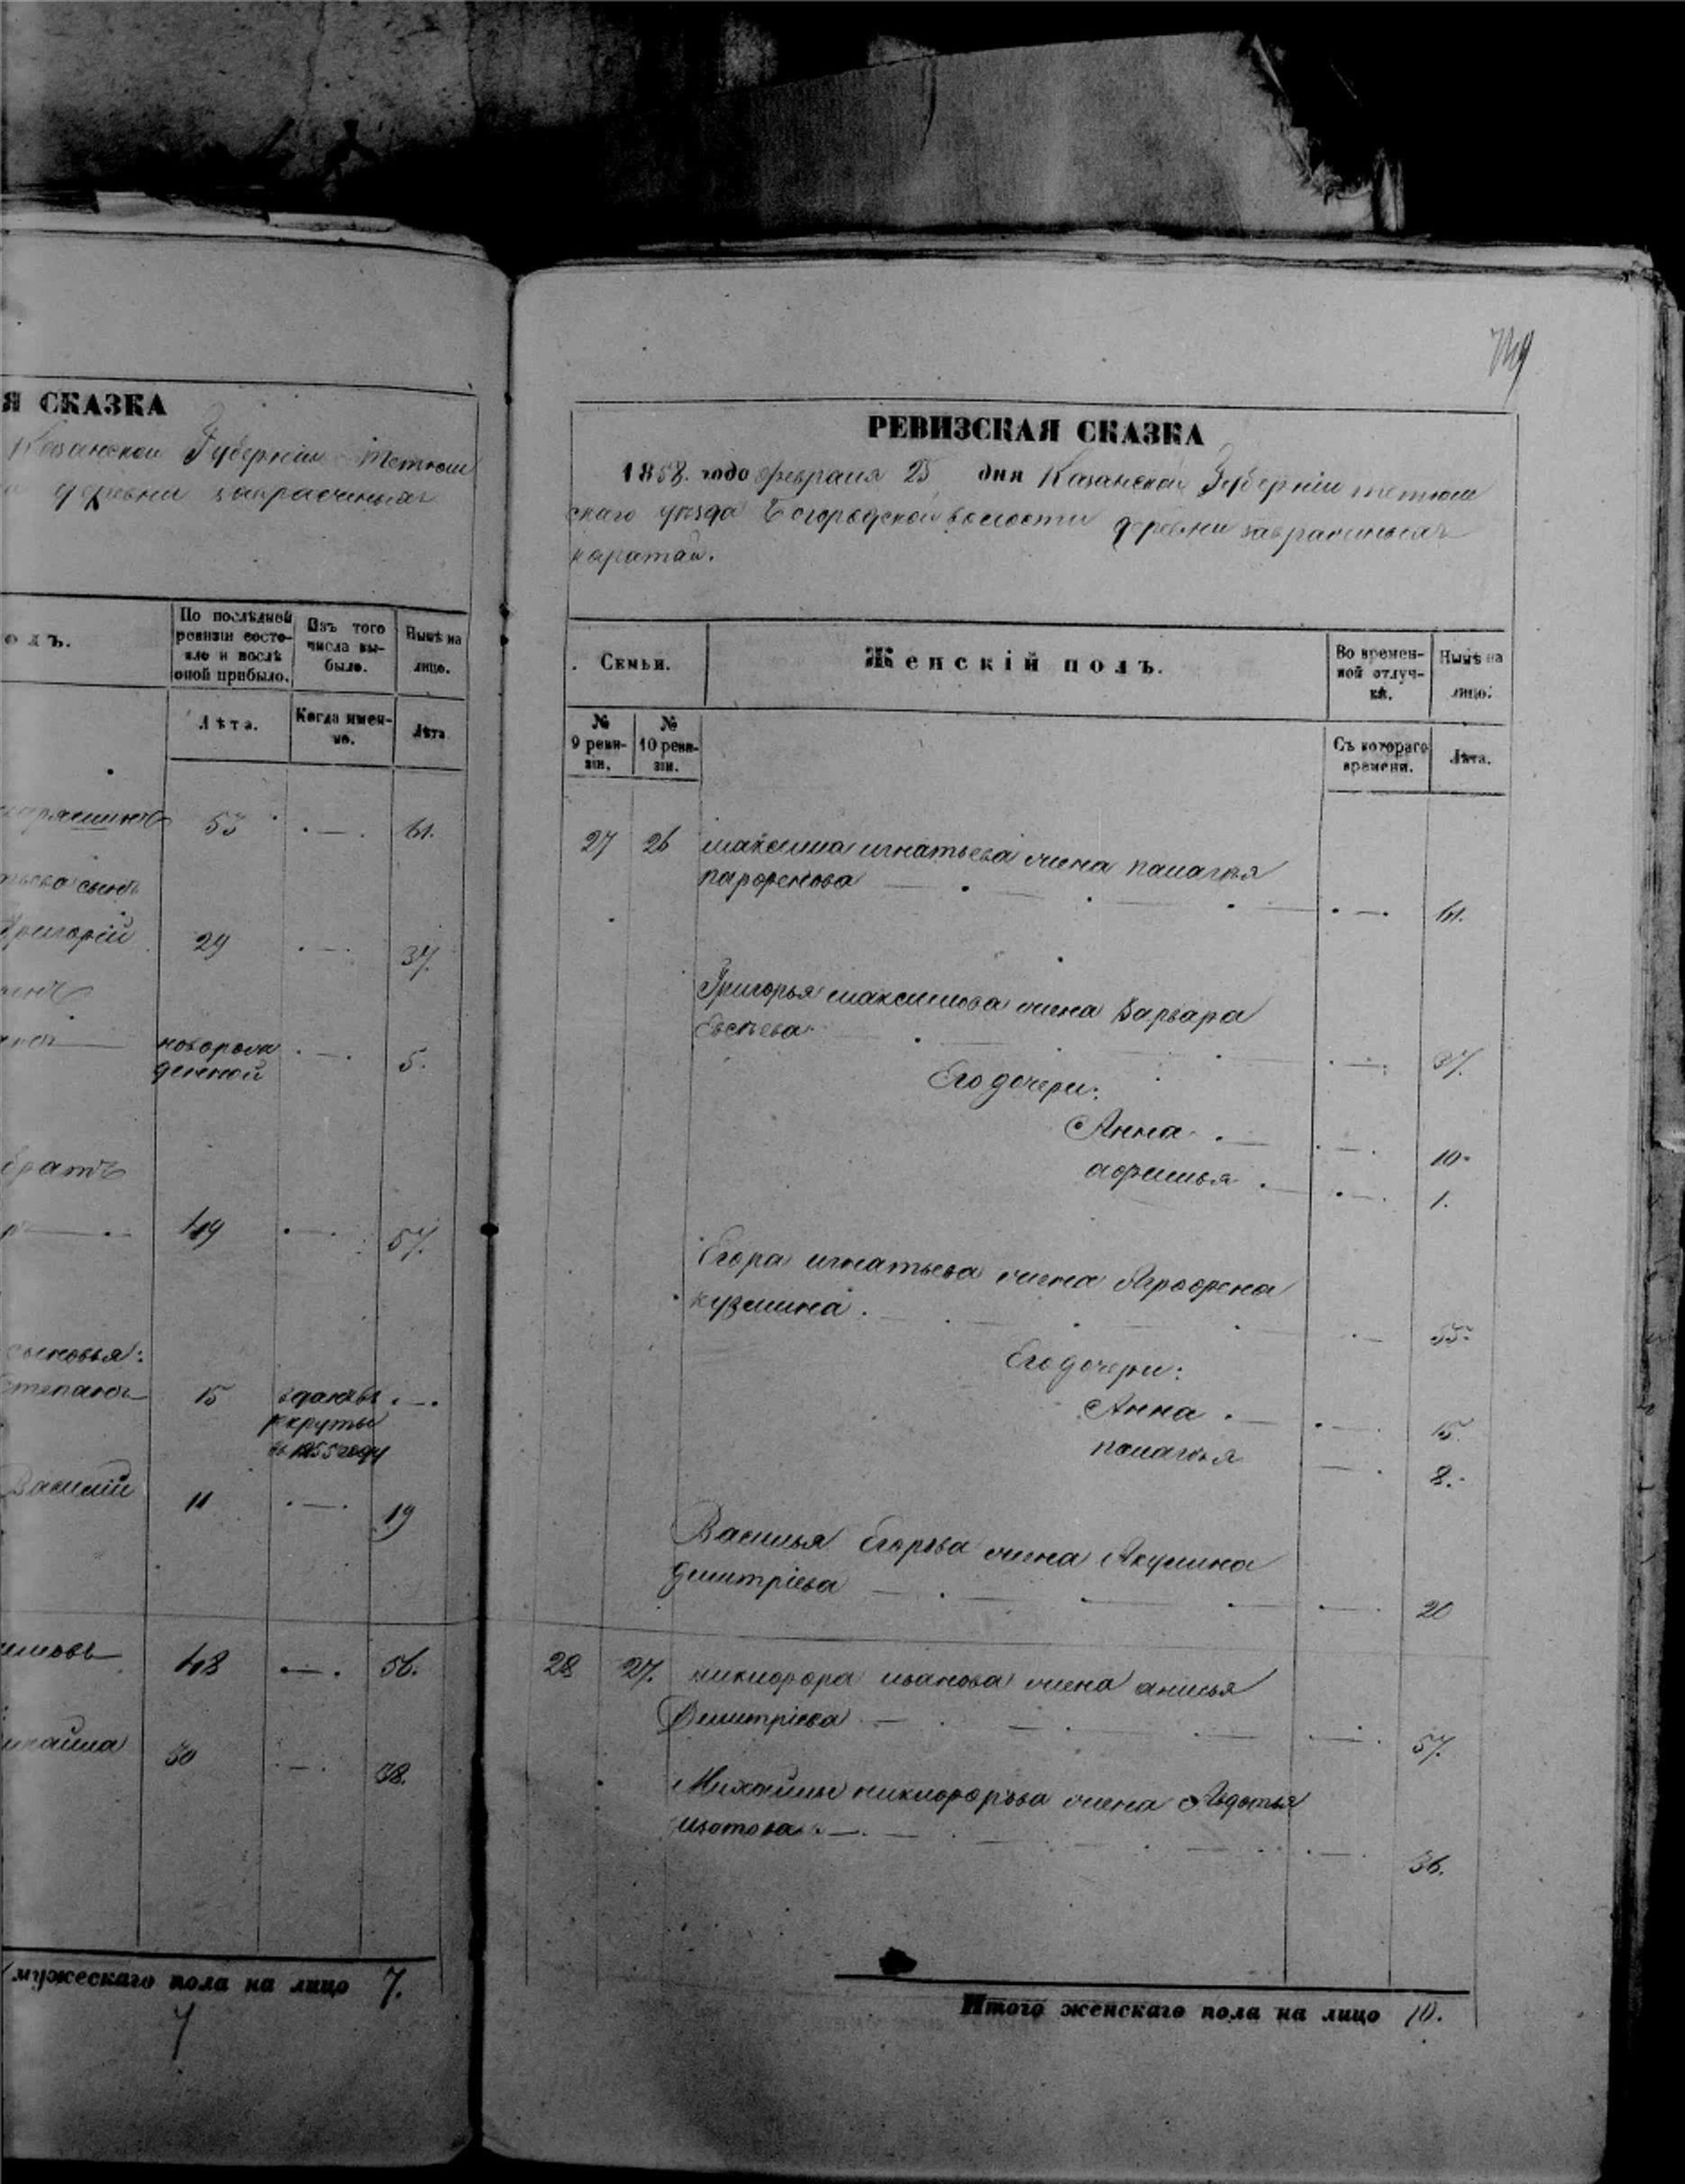 Я СКАЗКА
Казанской Губерніи Тетюш
деревни завражныхъ
олъ.
По послѣдней ревизіи состояло и послѣ оной прибыло.
Изъ того числа выбыло.
Нынѣ на лицо.
Лѣта.
Когда именно.
Лѣта
53 61.
сынъ
Григорій 29 37.
новорож
денной 5.
братъ
49 57.
сыновья:
Степанъ 15 въ
рекруты
въ 1855 году
Василій 11 19
48 56.
30 38.
мужескаго пола на лицо 7.
7
749
РЕВИЗСКАЯ СКАЗКА
1858. года февраля 25 дня Казанской Губерніи тетюш
скаго уезда Богородской волости деревни
каратай.
Семьи.
Женскій полъ.
Во временной отлучкѣ.
Нынѣ на лицо.
№ 9 ревизіи.
№ 10 ревизіи.
Съ котораго времени.
Лѣта.
27 26 максима игнатьева жена палагея
парфенова 61.
Григорья максимова жена Варвара
Евсеева 37.
Его дочери:
Анна 10.
афимья 1.
Егора игнатьева жена Агрофена
кузмина 55.
Его дочери:
Анна 15.
палагея 8.
Василья Егорова жена Акулина
дмитріева 20
28 27. никифора иванова жена анисья
Дмитріева 57.
Михайлы никифорова жена Авдотья
изотова 36.
Итого женскаго пола на лицо 10.